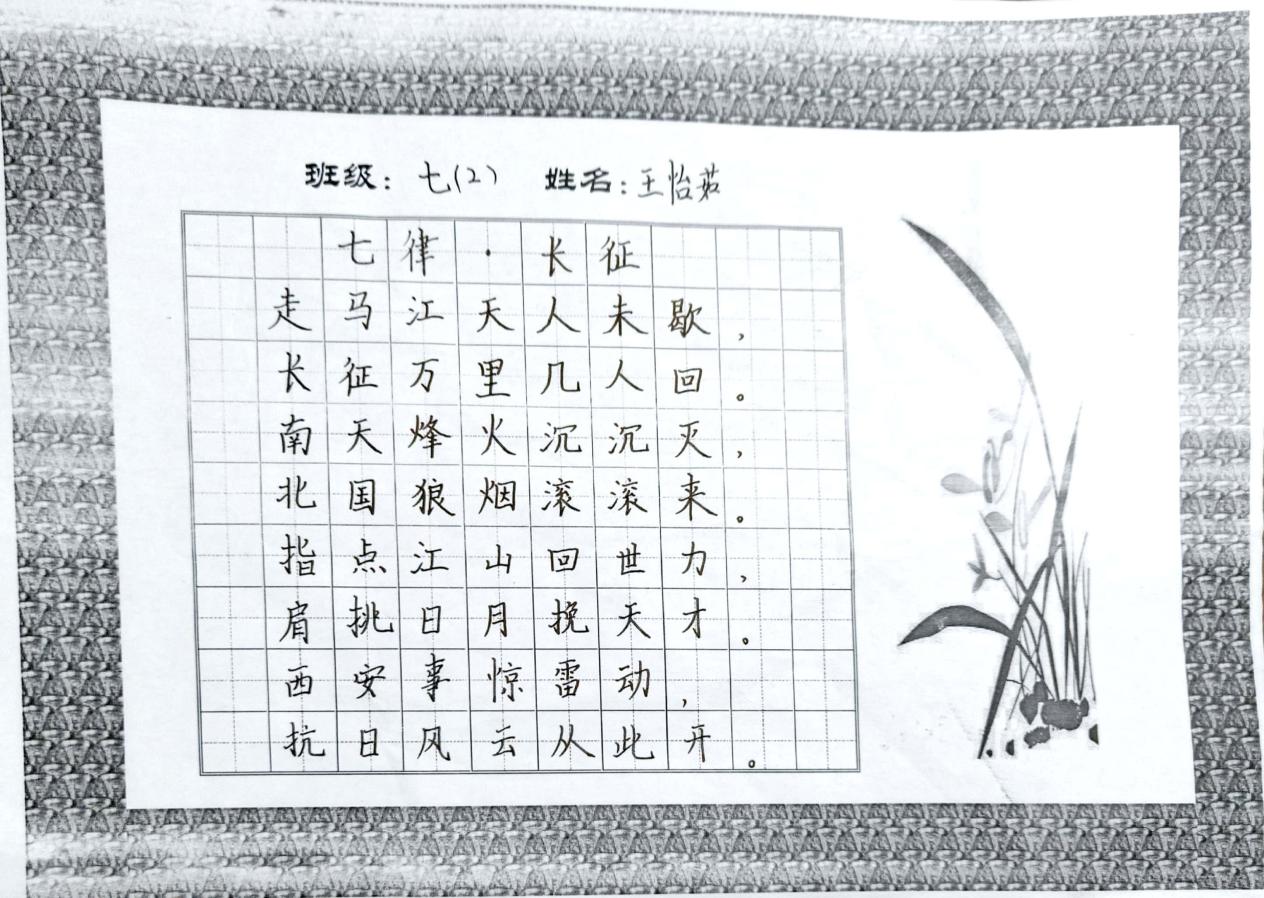 班级：七(2) 姓名：王怡茹
七律·长征
走马江天人未歇，
长征万里几人回。
南天烽火沉沉灭，
北国狼烟滚滚来。
指点江山回世力，
肩挑日月挽天才。
西安事惊雷动，
抗日风云从此开。